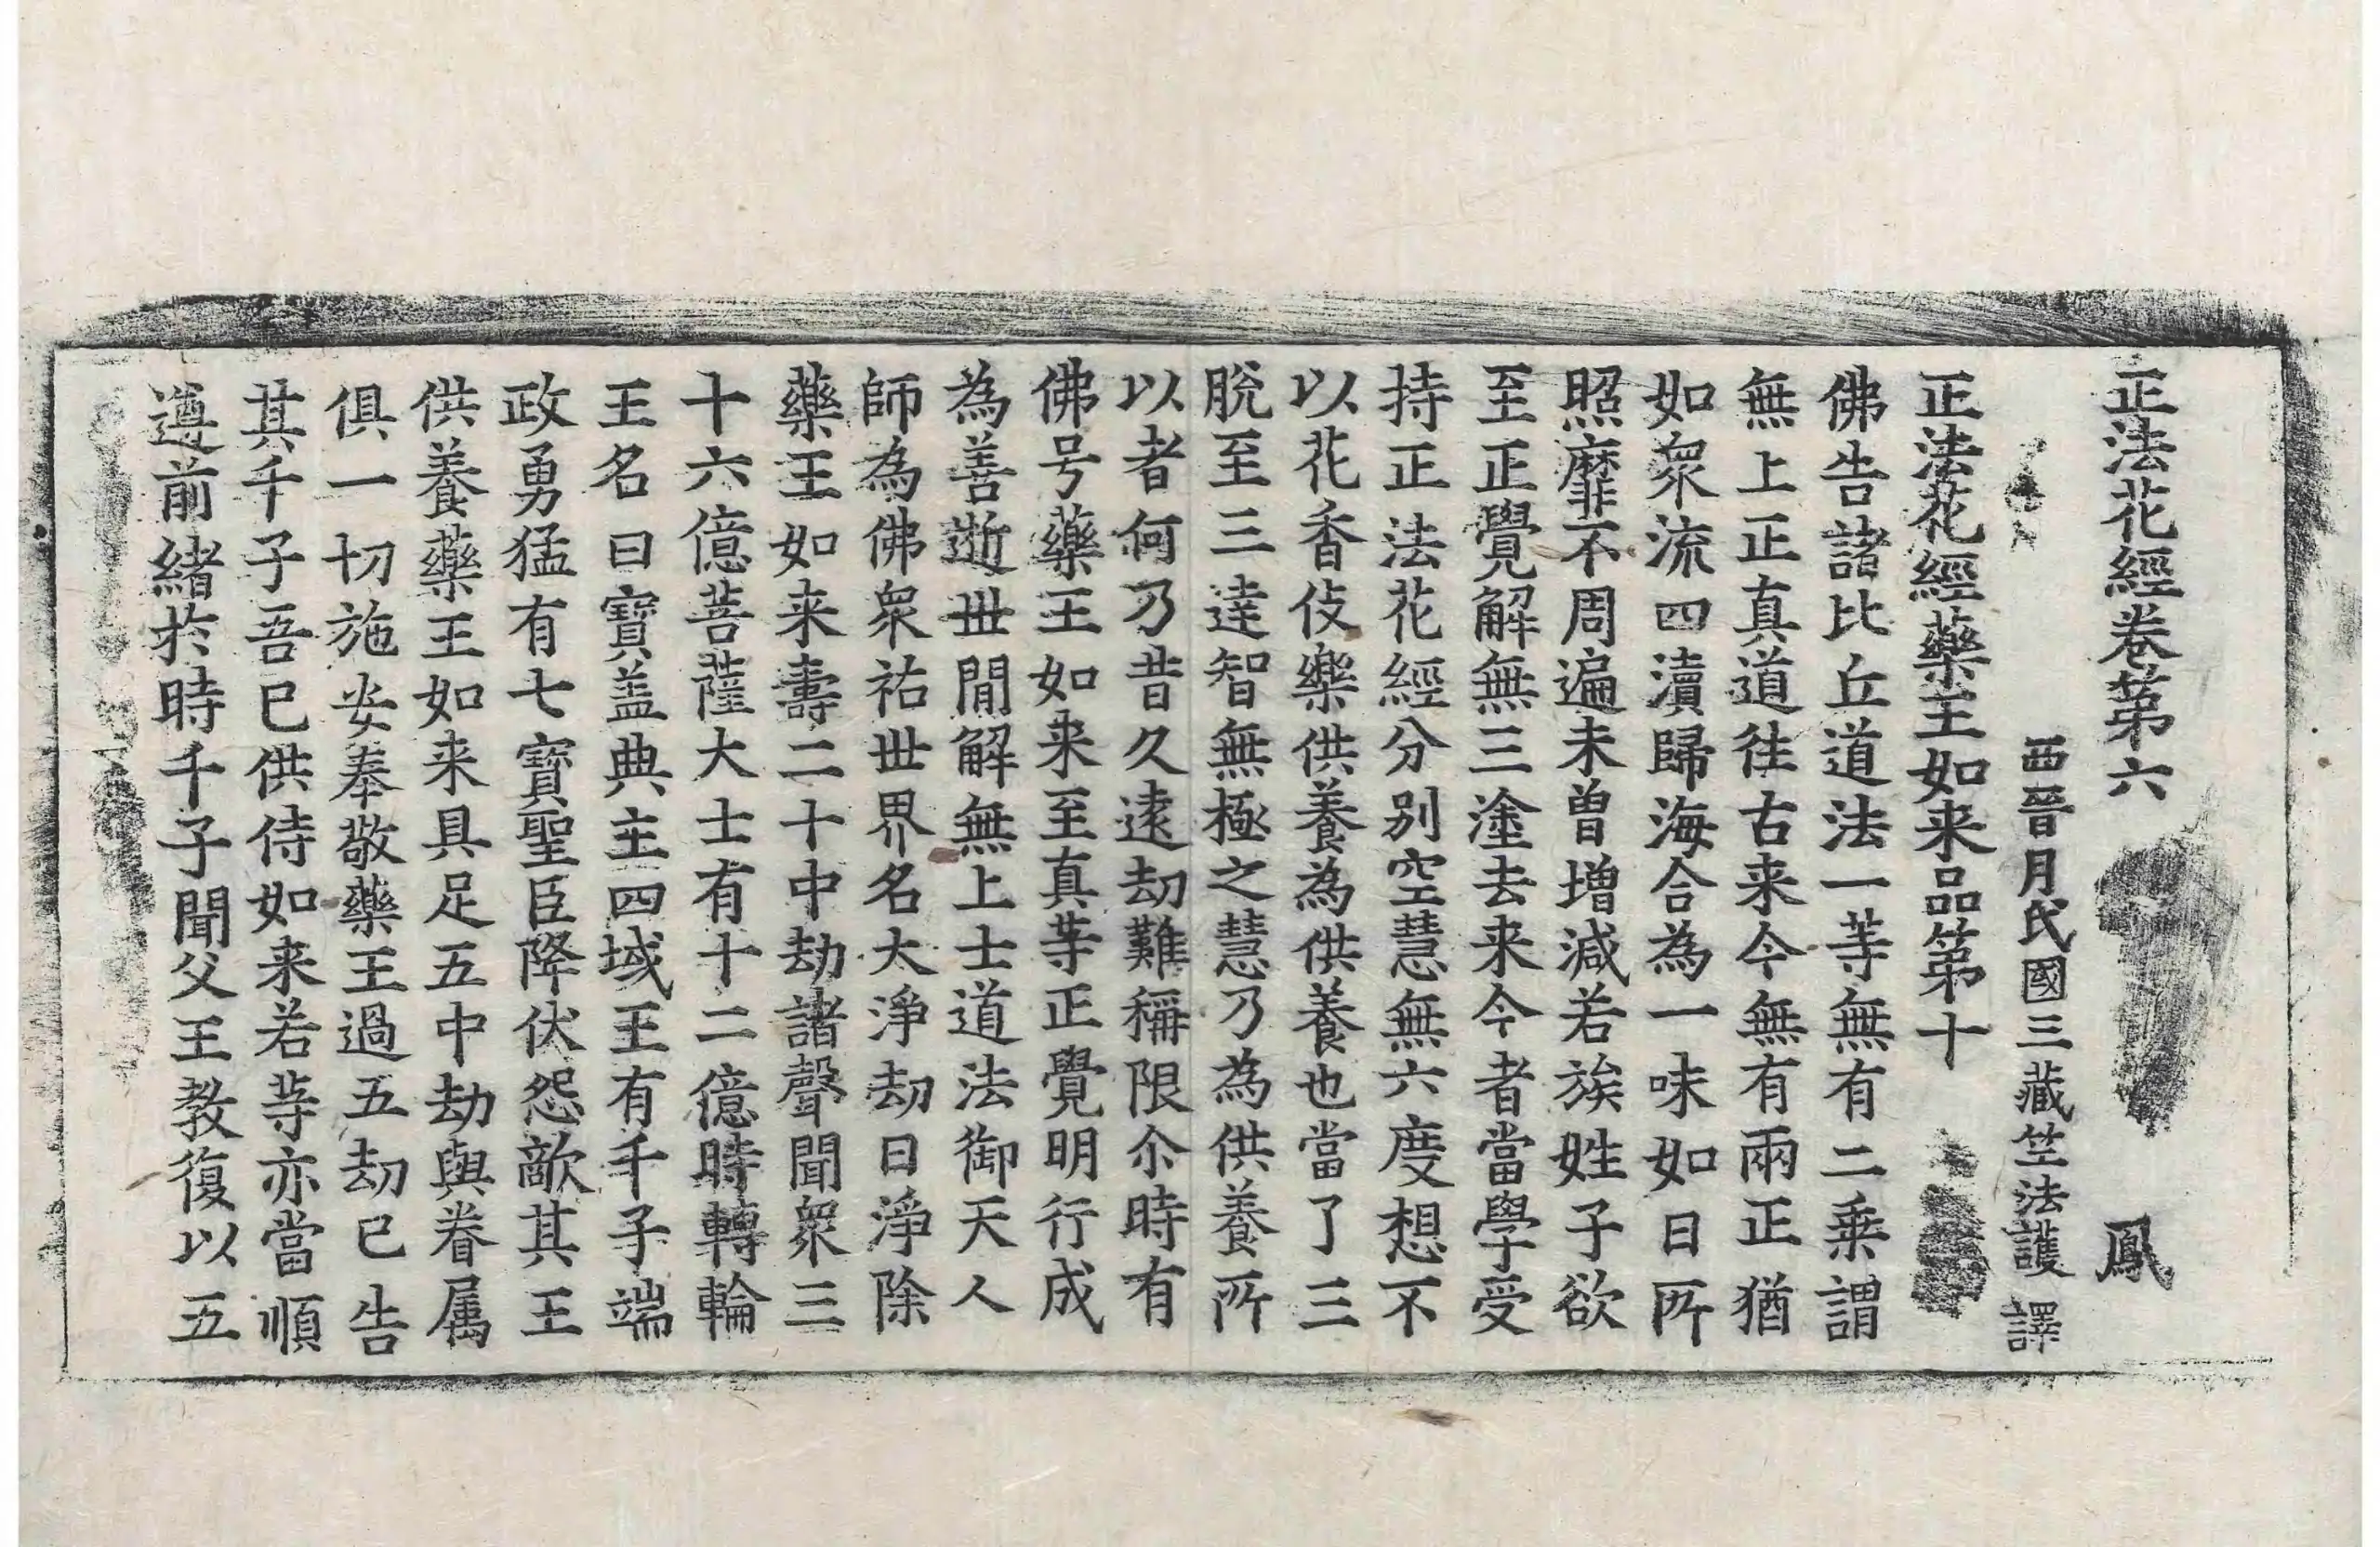 正法花經卷第六 鳳
西晉月氏國三藏竺法護 譯
正法花經藥王如来品第十
佛告諸比丘道法一等無有二乗謂
無上正真道往古来今無有兩正猶
如衆流四瀆歸海合為一味如日所
照靡不周遍未曽增減若族姓子欲
至正覺解無三塗去来今者當學受
持正法花經分别空慧無六度想不
以花香伎樂供養為供養也當了三
脫至三達智無極之慧乃為供養所
以者何乃昔久遠劫難稱限尒時有
佛号藥王如来至真等正覺明行成
為善逝世間解無上士道法御天人
師為佛衆祐世界名大淨劫曰淨除
藥王如来壽二十中劫諸聲聞衆三
十六億菩薩大士有十二億時轉輪
王名曰寶盖典主四域王有千子端
政勇猛有七寶聖臣降伏怨敵其王
供養藥王如来具足五中劫與眷属
俱一切施安奉敬藥王過五劫已告
其千子吾已供侍如来若等亦當順
遵前緒於時千子聞父王教復以五